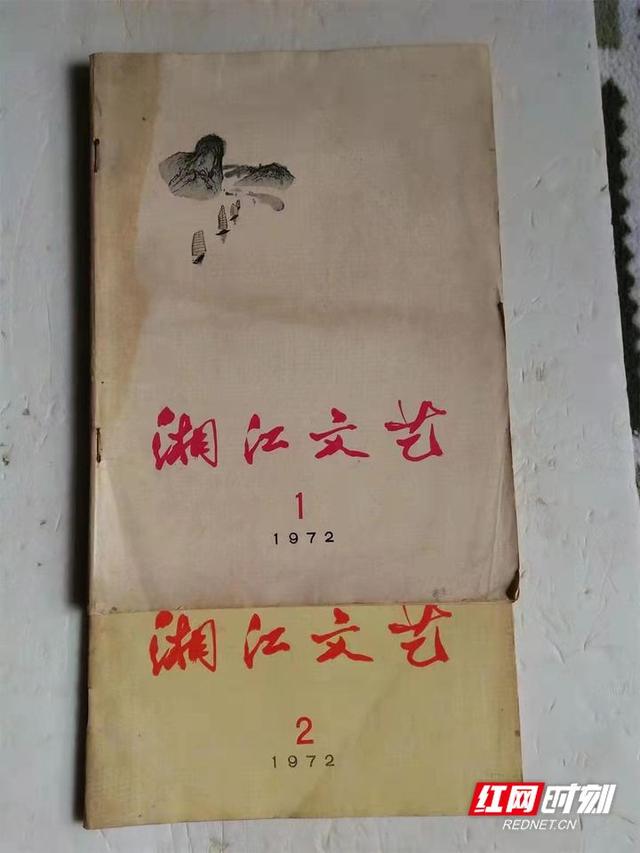 湘江文艺
1
1972
湘江文艺
2
1972
红网时刻
REDNET.CN